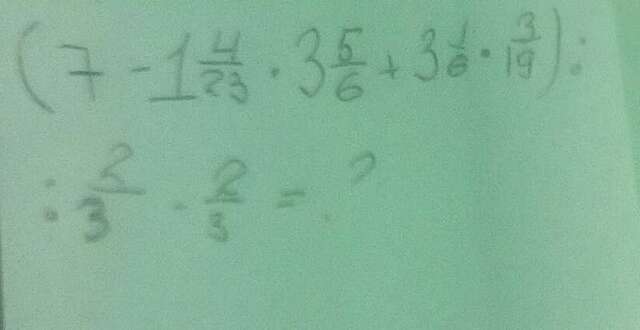 (7 - 1 4/23 · 3 5/6 + 3 1/6 · 3/19) :
: 2/3 - 2/3 = ?